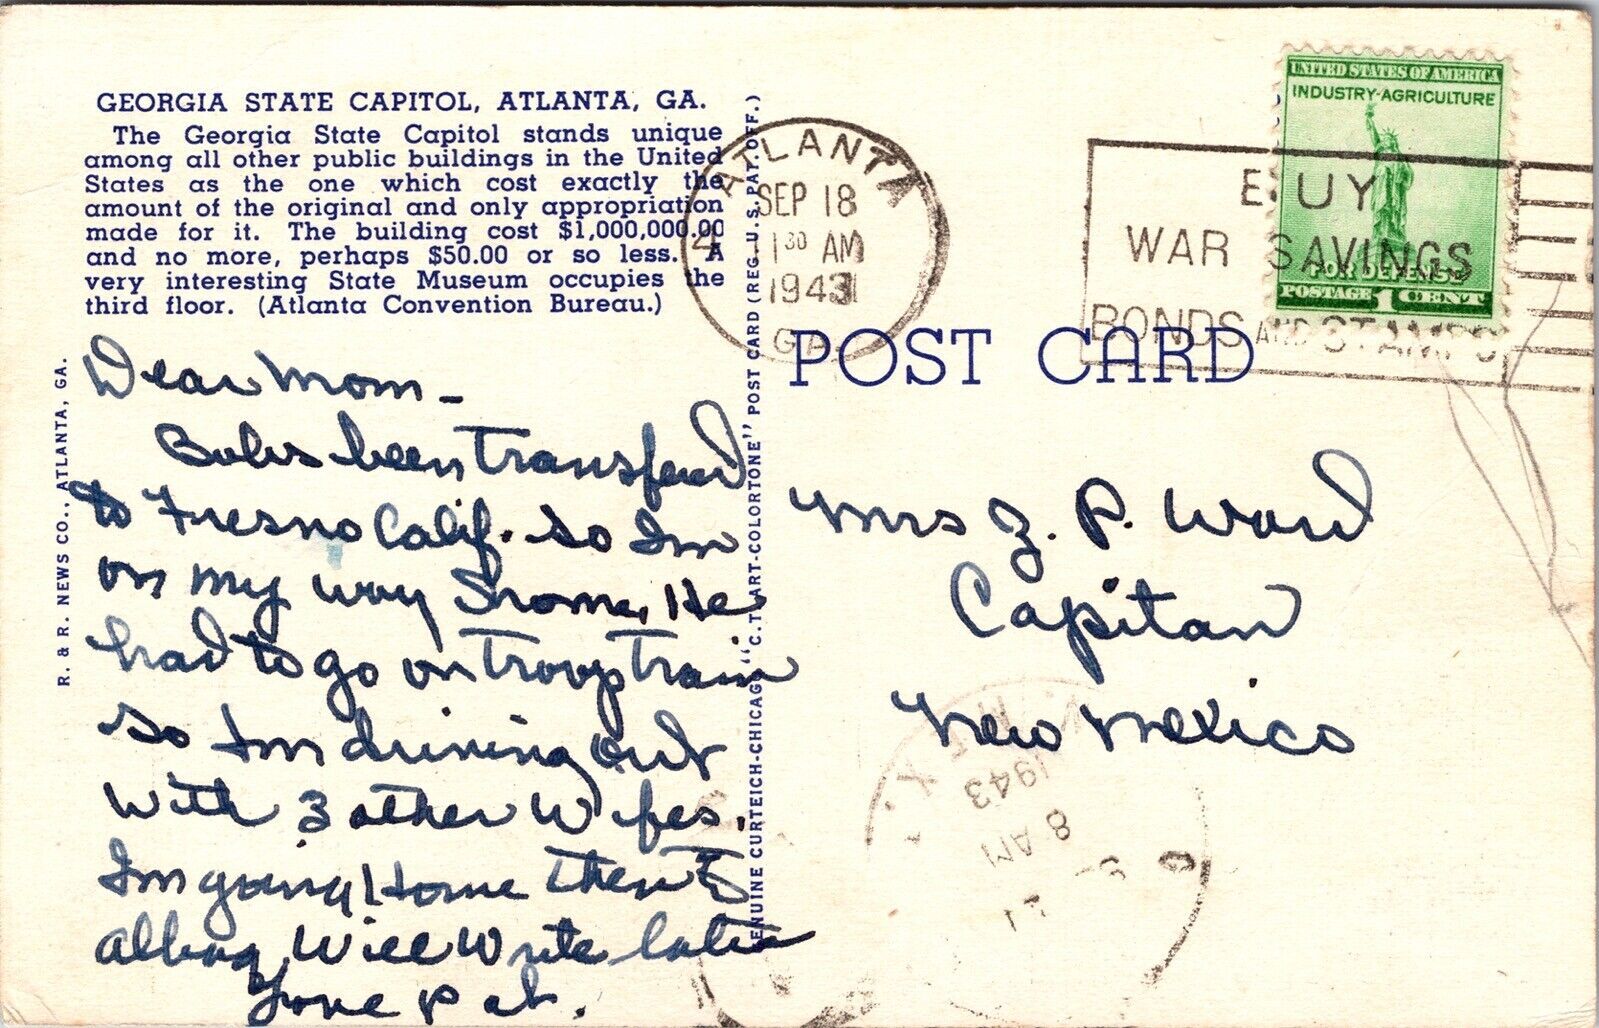 GEORGIA STATE CAPITOL, ATLANTA, GA.
The Georgia State Capitol stands unique
among all other public buildings in the United
States as the one which cost exactly the
amount of the original and only appropriation
made for it. The building cost $1,000,000.00
and no more, perhaps $50.00 or so less. A
very interesting State Museum occupies the
third floor. (Atlanta Convention Bureau.)
R. & R. NEWS CO., ATLANTA, GA.
Dear Mom -
Bobs been transfered
to Fresno Calif. so Im
on my way home, He
had to go on Troop Train
so Im driving out
with 3 other Wifes.
Im going Home then to
Albuq Will Write later
Love Pat.
GENUINE CURTEICH-CHICAGO "C.T. ART-COLORTONE" POST CARD (REG. U.S. PAT. OFF.)
ATLANTA
4
SEP 18
1 30 AM
1943
GA
BUY
WAR SAVINGS
BONDS AND STAMPS
UNITED STATES OF AMERICA
INDUSTRY-AGRICULTURE
FOR DEFENSE
POSTAGE 1 CENT
POST CARD
Mrs Z. P. Ward
Capitan
New Mexico
8 AM
1943
N. MEX.